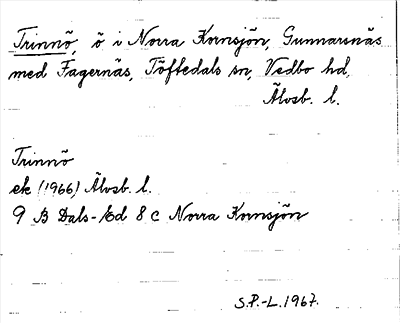 Trinnö, ö i Norra Kornsjön, Gunnarsnäs
med Fagernäs, Töftedals sn, Vedbo hd,
Älvsb. l.
Trinnö
ek (1966) Älvsb. l.
9 B Dals-Ed 8 c Norra Kornsjön
S.P.-L. 1967.